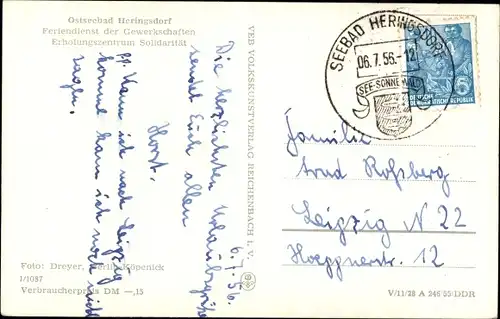 Ostseebad Heringsdorf
Feriendienst der Gewerkschaften
Erholungszentrum Solidarität
6.7.56.
Die herzlichsten Urlaubsgrüße
sendet Euch allen
Horst.
Ob kann ich nach Leipzig
komme kann ich noch nicht
sagen.
Foto: Dreyer, Berlin-Köpenick
I/1037
Verbraucherpreis DM —,15
VEB VOLKSKUNSTVERLAG REICHENBACH i. V.
SEEBAD HERINGSDORF
06.7.56.-12
SEE-SONNE-WALD
DEUTSCHE DEMOKRATISCHE REPUBLIK
Familie
Roßberg
Leipzig N 22
Hoeppnerstr. 12
V/11/28 A 246/55/DDR